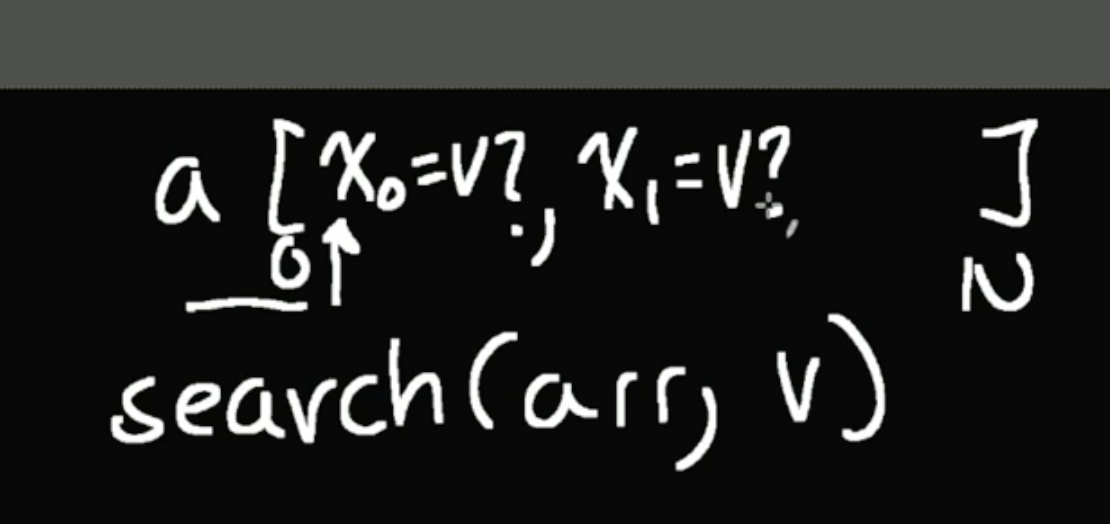 a [x₀=v?, x₁=v?, ]
0 N
search(arr, v)